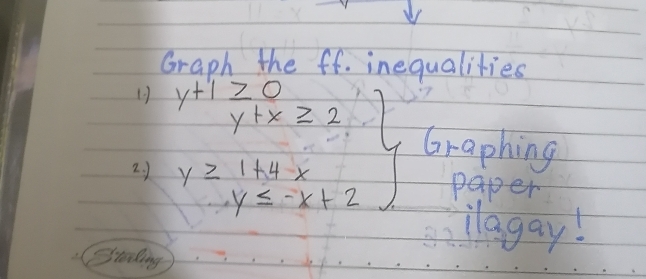 Graph the ff. inequalities
1.) y+1 ≥ 0
y+x ≥ 2
2.) y ≥ 1+4x
y ≤ -x+2
Graphing
paper
ilagay!
Sterling